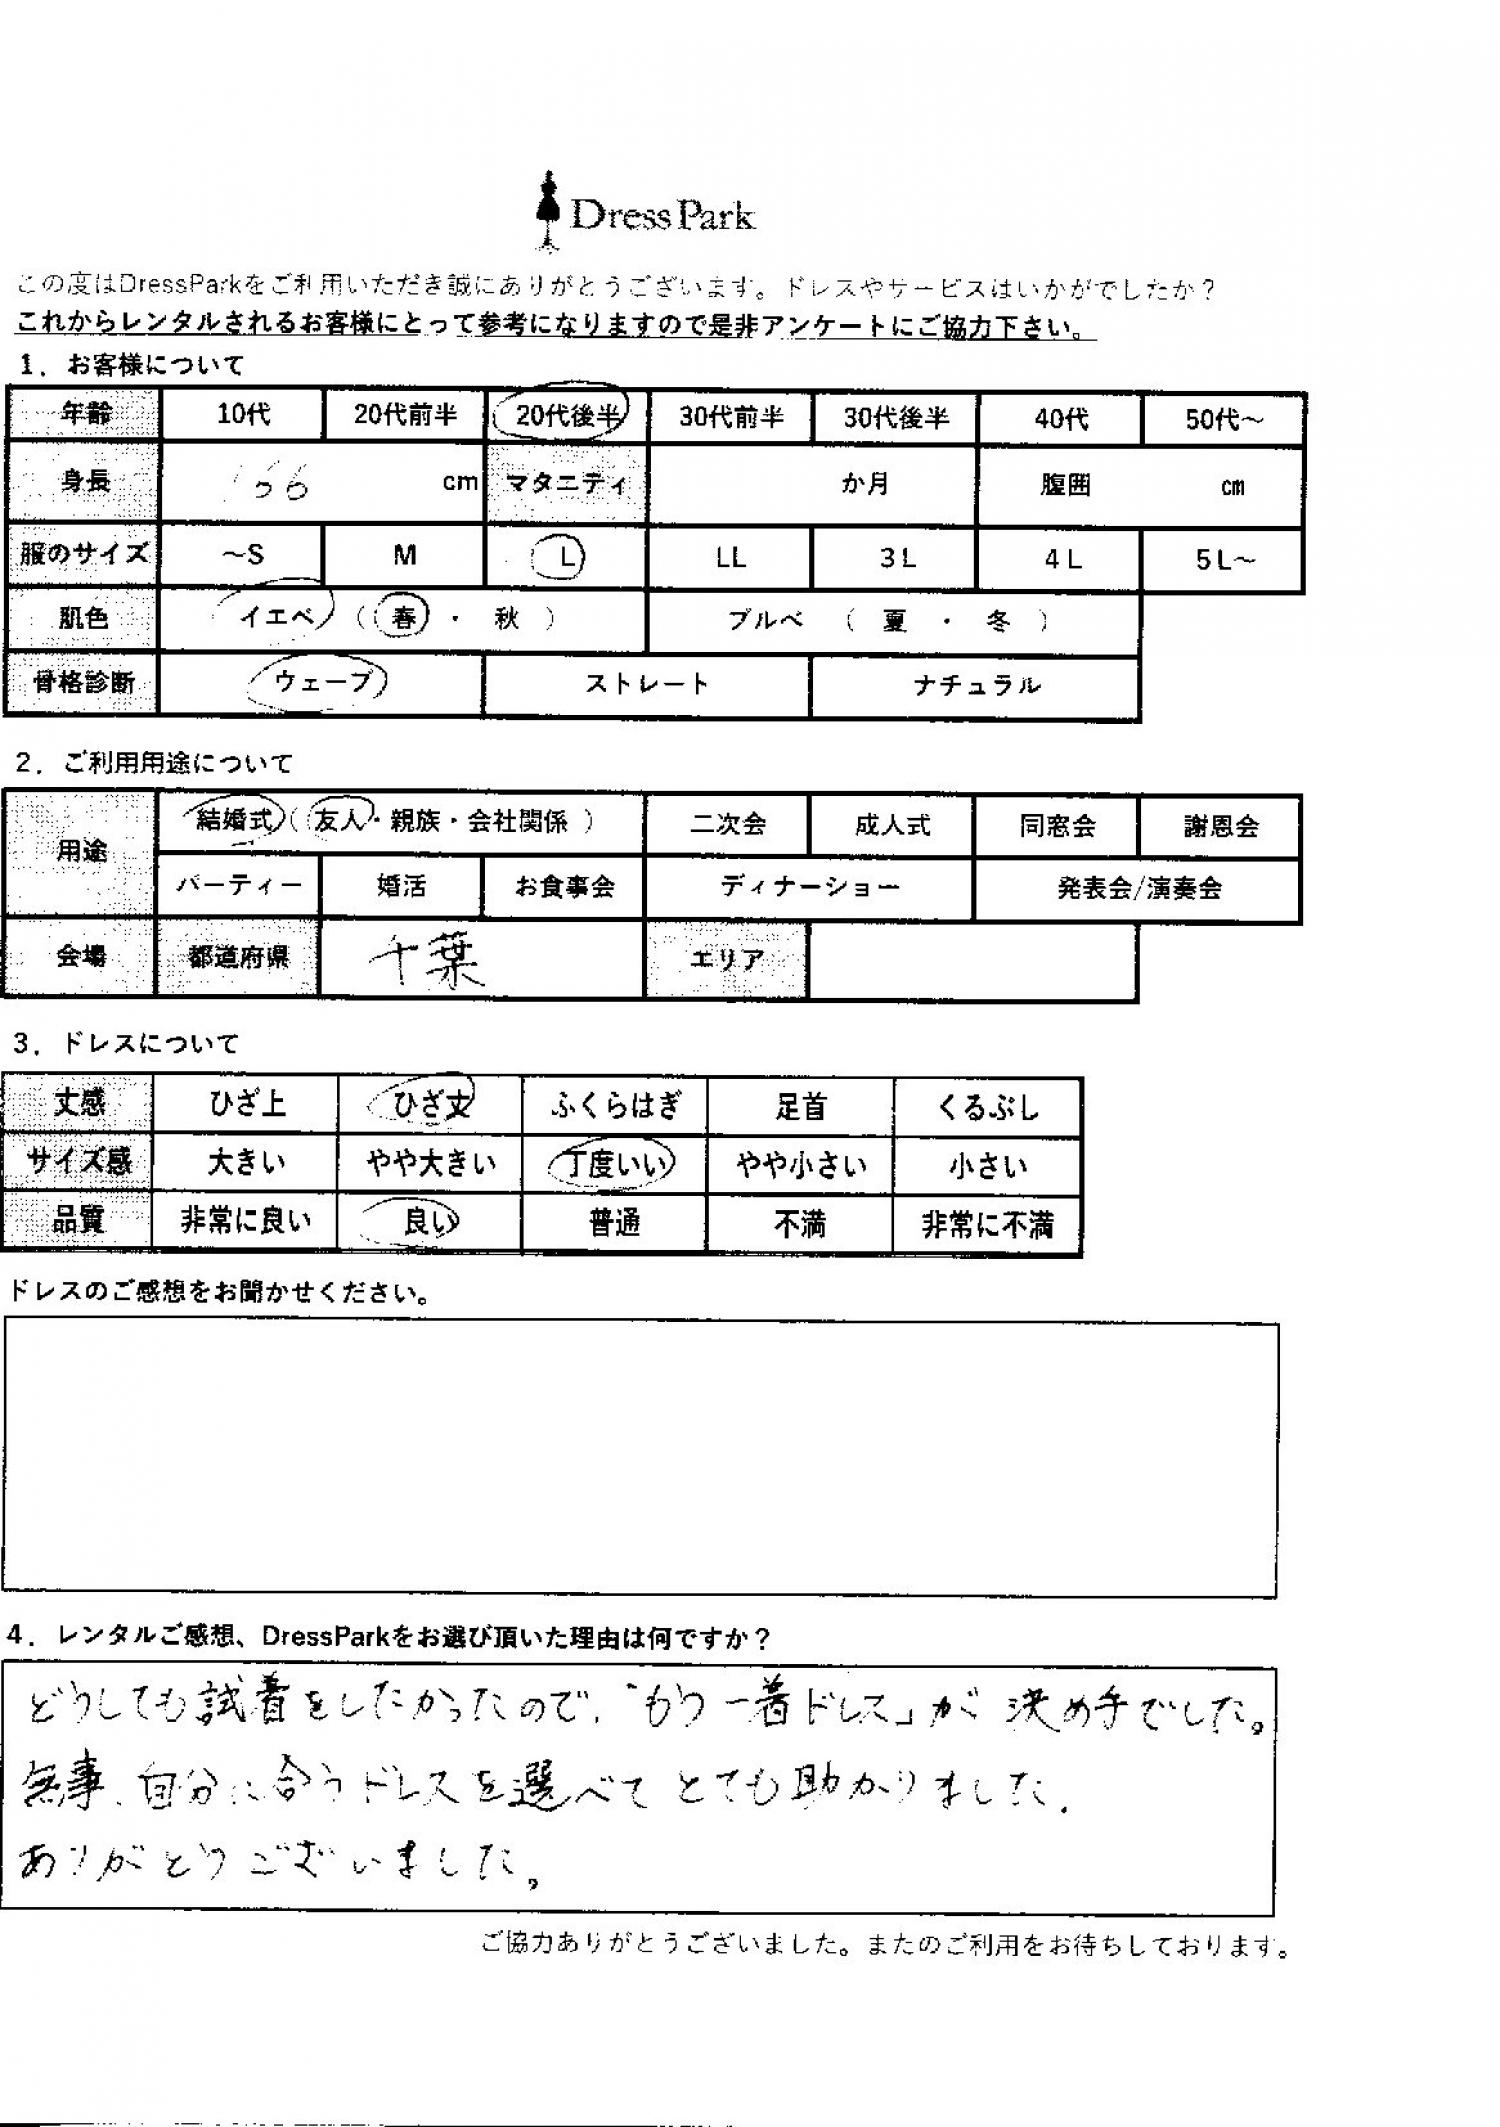 DressPark
この度はDressParkをご利用いただき誠にありがとうございます。ドレスやサービスはいかがでしたか？
これからレンタルされるお客様にとって参考になりますので是非アンケートにご協力下さい。
1．お客様について
年齢 10代 20代前半 20代後半 30代前半 30代後半 40代 50代～
身長 166 cm マタニティ か月 腹囲 cm
服のサイズ ～S M L LL 3L 4L 5L～
肌色 イエベ （ 春 ・ 秋 ） ブルベ （ 夏 ・ 冬 ）
骨格診断 ウェーブ ストレート ナチュラル
2．ご利用用途について
用途 結婚式（ 友人・親族・会社関係 ） 二次会 成人式 同窓会 謝恩会
パーティー 婚活 お食事会 ディナーショー 発表会/演奏会
会場 都道府県 千葉 エリア
3．ドレスについて
丈感 ひざ上 ひざ丈 ふくらはぎ 足首 くるぶし
サイズ感 大きい やや大きい 丁度いい やや小さい 小さい
品質 非常に良い 良い 普通 不満 非常に不満
ドレスのご感想をお聞かせください。
4．レンタルご感想、DressParkをお選び頂いた理由は何ですか？
どうしても試着をしたかったので、「もう一着ドレス」が決め手でした。
無事、自分に合うドレスを選べてとても助かりました。
ありがとうございました。
ご協力ありがとうございました。またのご利用をお待ちしております。